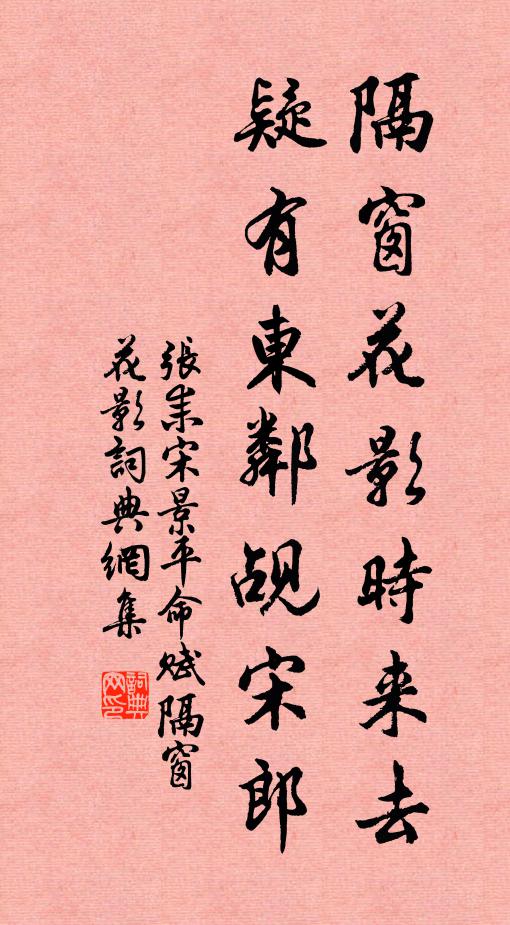 隔窗花影時来去
疑有東鄰覘宋郎
張耒宋景平命賦隔窗
花影詞典網集
詞典網印